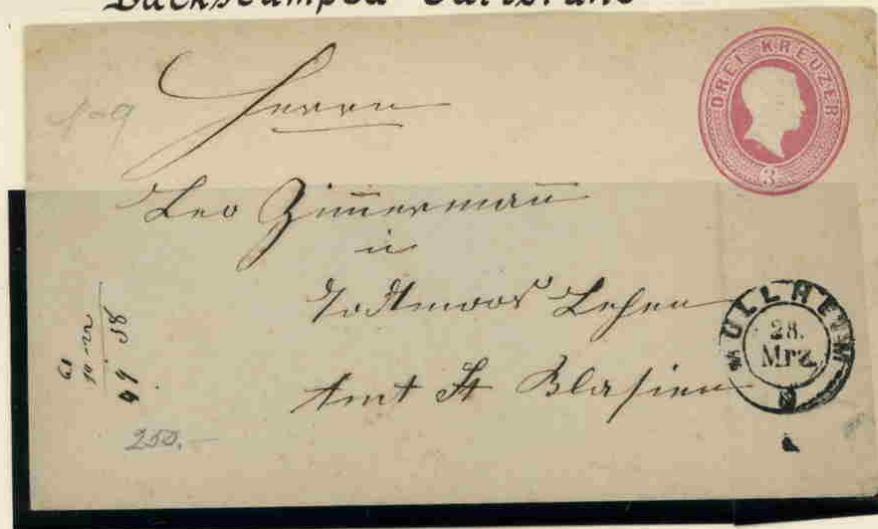 Backstamped Carlsruhe
DREI KREUZER
3
Herrn
Leo Zim̄erman̄
in
Todtmoos Lehen
Amt St Blasien
MÜLLHEIM
28.
Mrz.
250.-